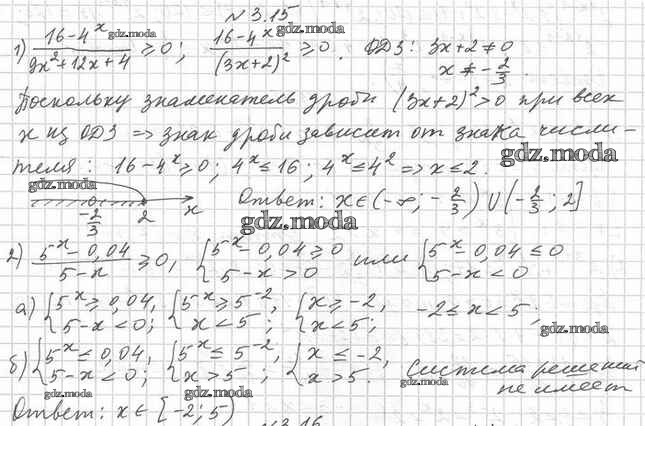 № 3.15
1) (16-4^x)/(9x²+12x+4) ≥ 0; (16-4^x)/(3x+2)² ≥ 0. ОДЗ: 3x+2≠0
x ≠ -2/3.
Поскольку знаменатель дроби (3x+2)²>0 при всех
x из ОДЗ => знак дроби зависит от знака числи-
теля: 16-4^x≥0; 4^x≤16; 4^x≤4² => x≤2.
-2/3 2 x Ответ: x∈(-∞; -2/3)∪(-2/3; 2]
2) (5^x-0,04)/(5-x) ≥0, {5^x-0,04≥0 5-x>0 или {5^x-0,04≤0 5-x<0
а) {5^x≥0,04, 5-x<0; {5^x≥5^-2, x<5; {x≥-2, x<5; -2≤x<5;
б) {5^x≤0,04, 5-x<0; {5^x≤5^-2, x>5; {x≤-2, x>5. Система решений
не имеет
Ответ: x∈[-2; 5)
gdz.moda
gdz.moda
gdz.moda
gdz.moda
gdz.moda
gdz.moda
gdz.moda
gdz.moda
gdz.moda